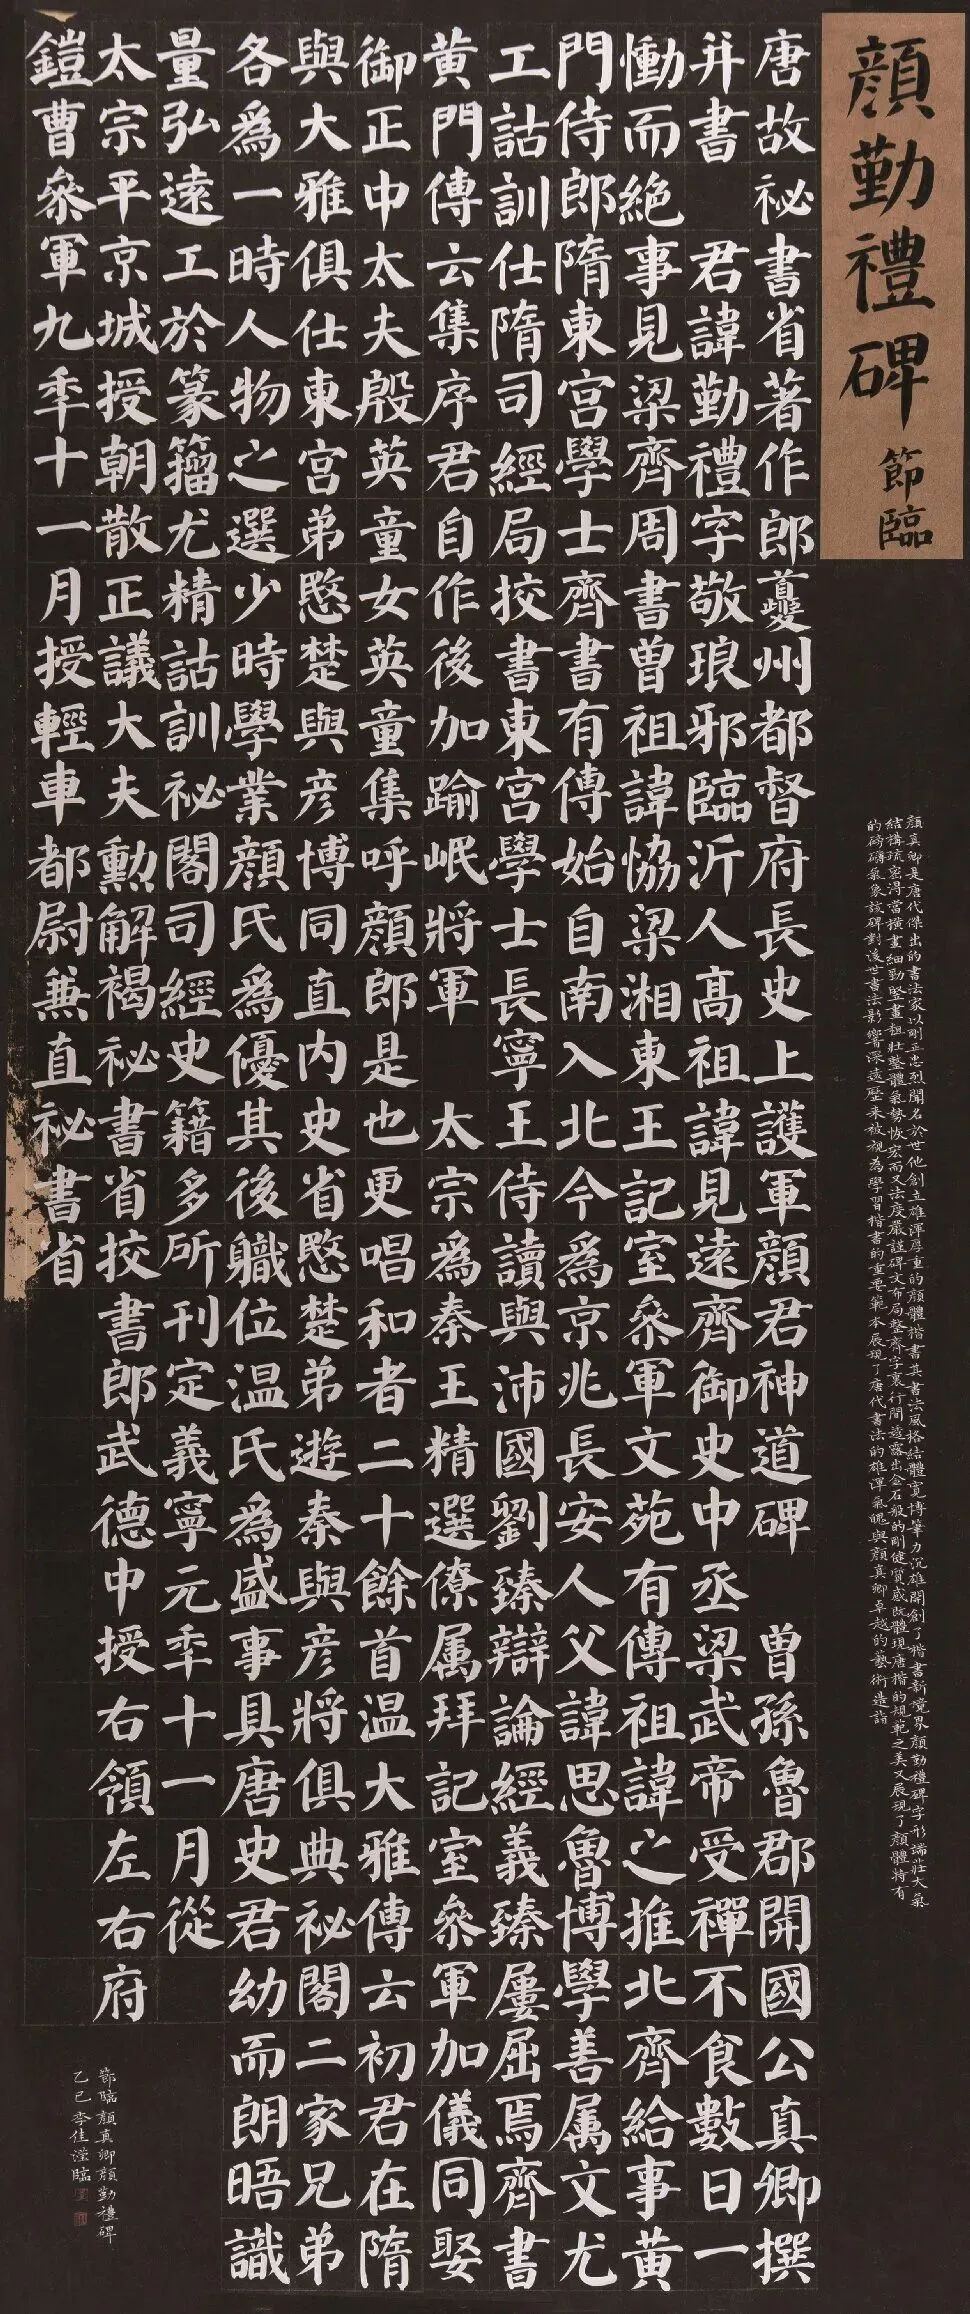 顏勤禮碑 節臨
顏真卿是唐代傑出的書法家以剛正忠烈聞名於世他創立雄渾厚重的顏體楷書其書法風格結體寬博筆力沉雄開創了楷書新境界顏勤禮碑字形端莊大氣
結構疏密得當橫畫細勁豎畫粗壯整體氣勢恢宏而又法度嚴謹碑文布局整齊字裏行間透露出金石般的剛健質感既體現唐楷的規範之美又展現了顏體特有
的磅礴氣象該碑對後世書法影響深遠歷來被視為學習楷書的重要範本展現了唐代書法的雄渾氣魄與顏真卿卓越的藝術造詣
唐故祕書省著作郎夔州都督府長史上護軍顏君神道碑 曾孫魯郡開國公真卿撰
并書 君諱勤禮字敬琅邪臨沂人高祖諱見遠齊御史中丞梁武帝受禪不食數日一
慟而絕事見梁齊周書曾祖諱協梁湘東王記室叅軍文苑有傳祖諱之推北齊給事黃
門侍郎隋東宮學士齊書有傳始自南入北今爲京兆長安人父諱思魯博學善属文尤
工詁訓仕隋司經局挍書東宮學士長寧王侍讀與沛國劉臻辯論經義臻屢屈焉齊書
黃門傳云集序君自作後加踰岷將軍 太宗爲秦王精選僚属拜記室叅軍加儀同娶
御正中太夫殷英童女英童集呼顏郎是也更唱和者二十餘首温大雅傳云初君在隋
與大雅俱仕東宮弟愍楚與彥博同直內史省愍楚弟遊秦與彥將俱典祕閣二家兄弟
各爲一時人物之選少時學業顏氏爲優其後職位温氏爲盛事具唐史君幼而朗晤識
量弘遠工於篆籀尤精詁訓祕閣司經史籍多所刊定義寧元秊十一月從
太宗平京城授朝散正議大夫勳解褐祕書省挍書郎武德中授右領左右府
鎧曹叅軍九秊十一月授輕車都尉兼直祕書省
節臨顏真卿顏勤禮碑
乙巳李佳瀅臨